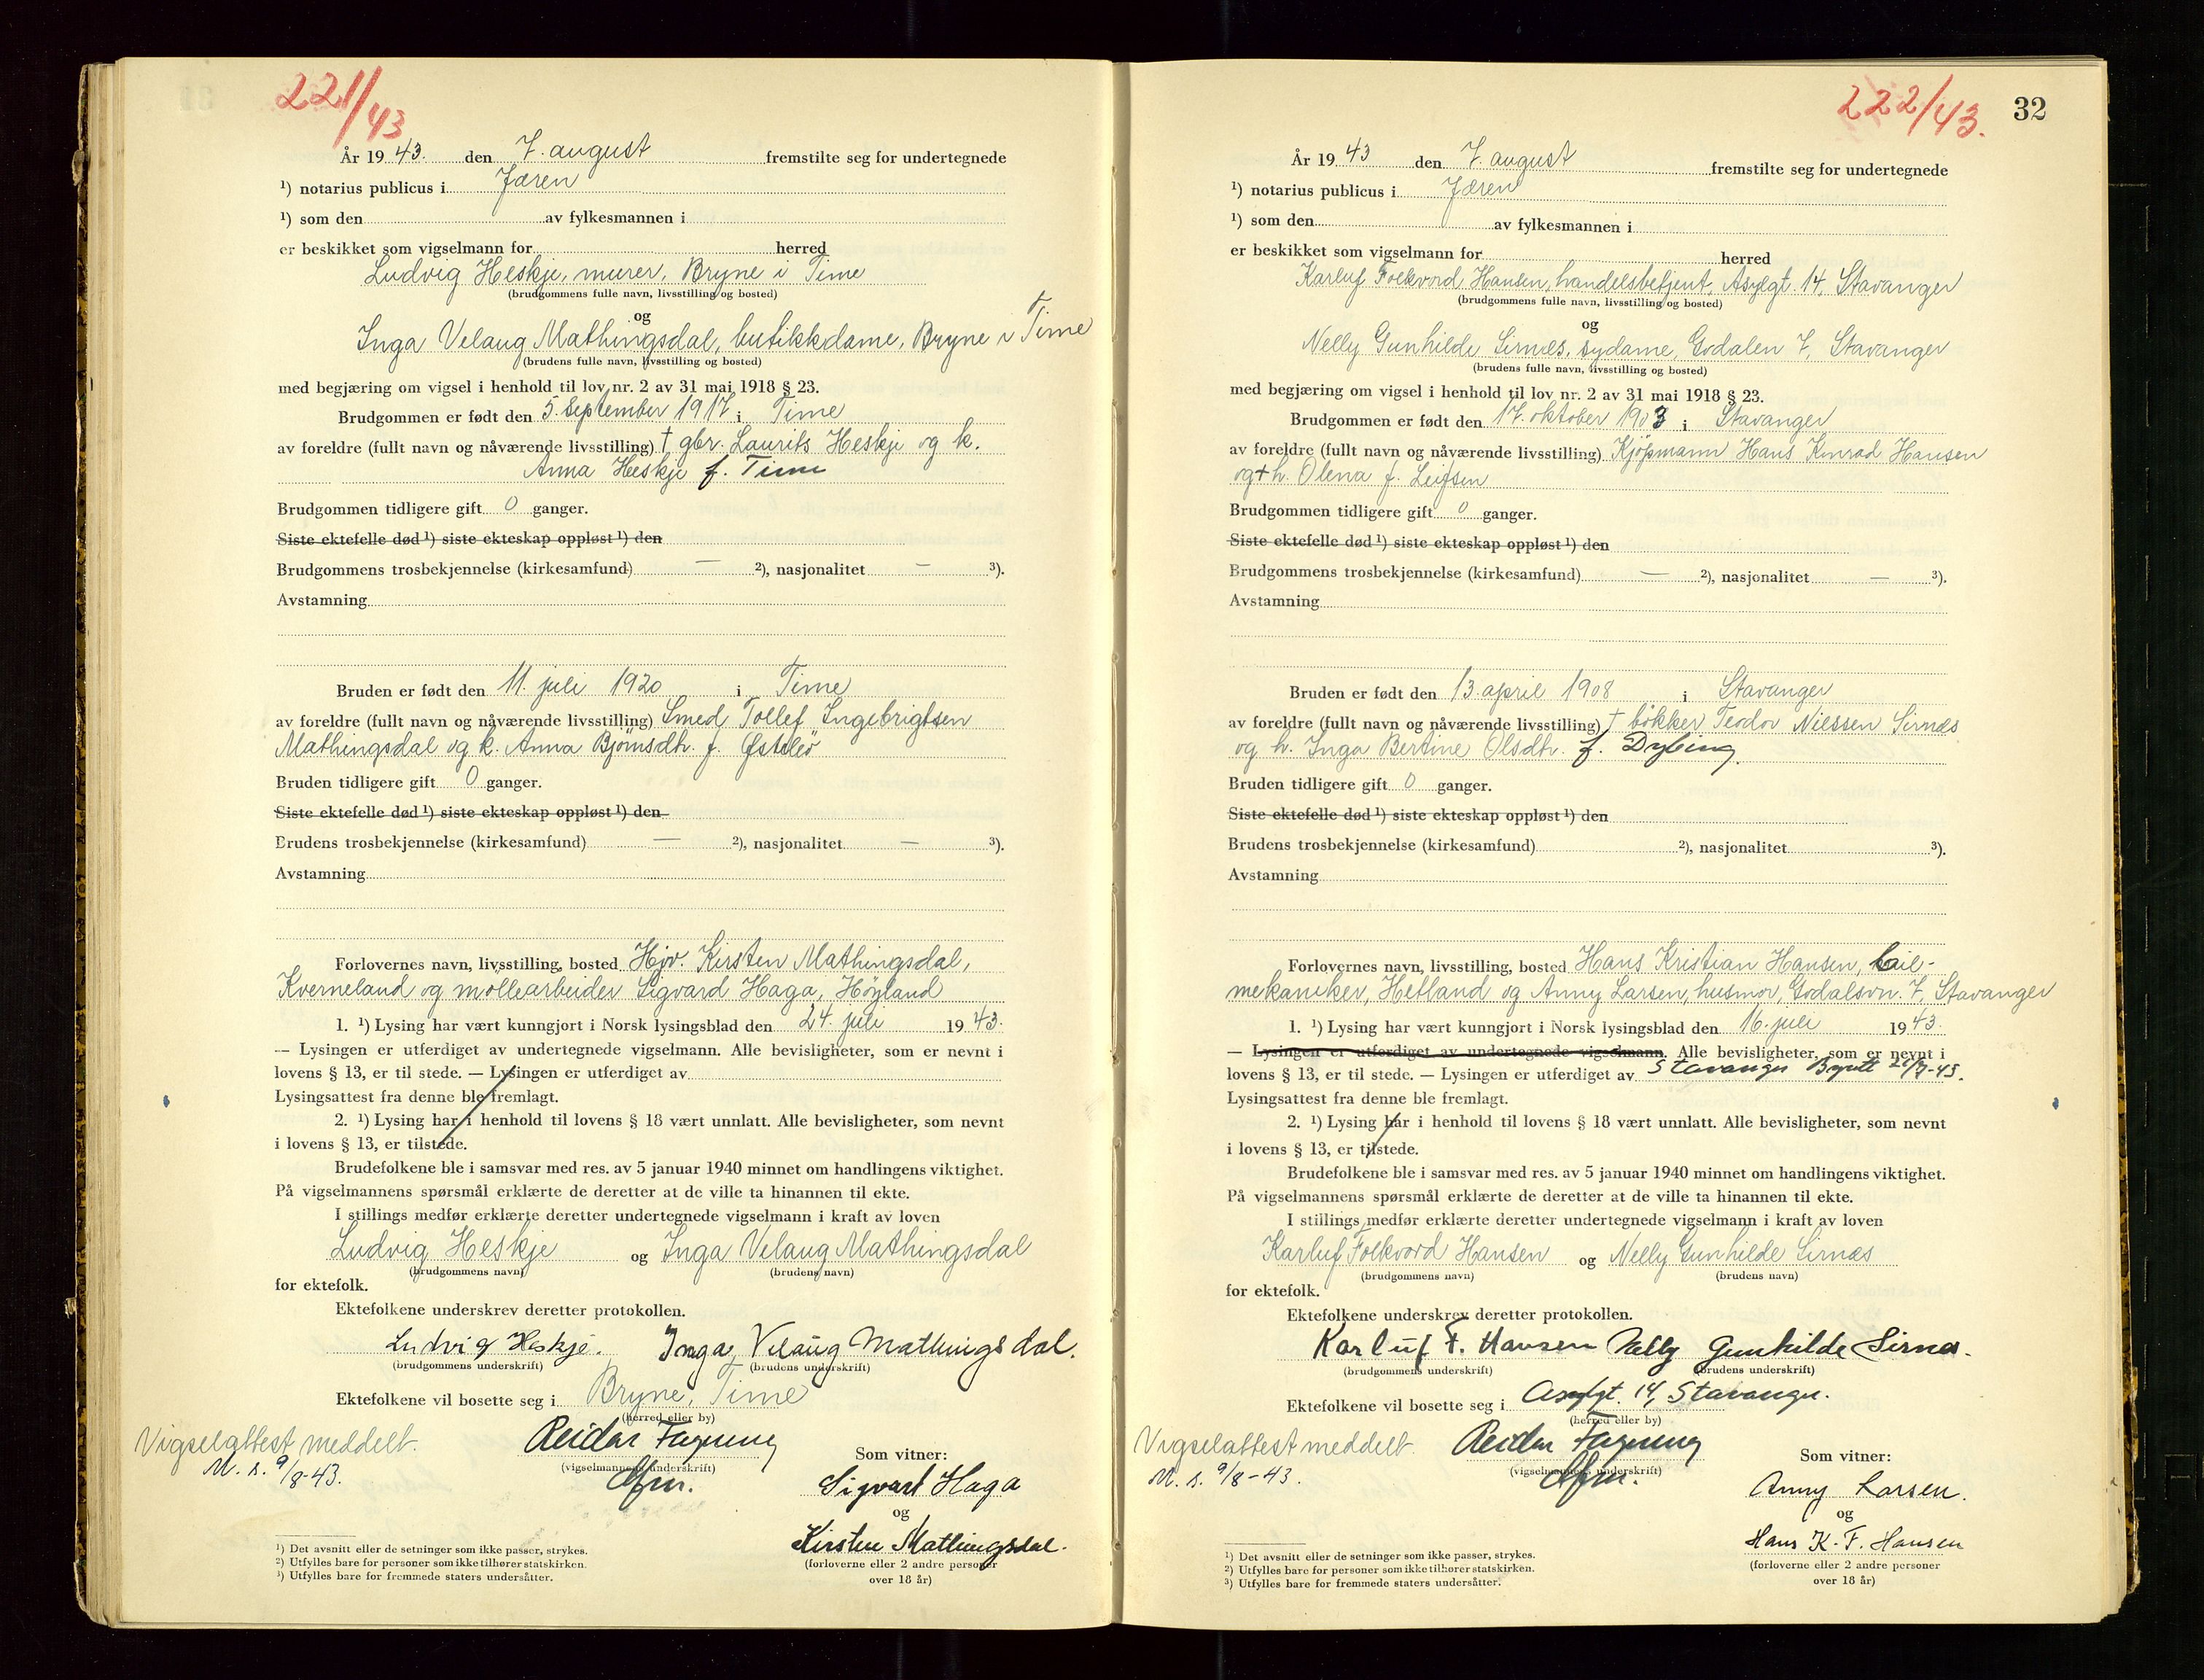 221/43
År 1943. den 7. august fremstilte seg for undertegnede
¹) notarius publicus i Jæren
¹) som den av fylkesmannen i
er beskikket som vigselmann for herred
Ludvig Heskje, murer, Bryne i Time
(brudgommens fulle navn, livsstilling og bosted)
og
Inga Velaug Mathingsdal, butikkdame, Bryne i Time
(brudens fulle navn, livsstilling og bosted)
med begjæring om vigsel i henhold til lov nr. 2 av 31 mai 1918 § 23.
Brudgommen er født den 5. september 1917 i Time
av foreldre (fullt navn og nåværende livsstilling) † gbr. Laurits Heskje og k.
Anna Heskje f. Time
Brudgommen tidligere gift 0 ganger.
Siste ektefelle død ¹) siste ekteskap oppløst ¹) den
Brudgommens trosbekjennelse (kirkesamfund) — ²), nasjonalitet — ³).
Avstamning
Bruden er født den 11. juli 1920 i Time
av foreldre (fullt navn og nåværende livsstilling) Smed Tollef Ingebrigtsen
Mathingsdal og k. Anna Bjørnsdh. f.
Bruden tidligere gift 0 ganger.
Siste ektefelle død ¹) siste ekteskap oppløst ¹) den
Brudens trosbekjennelse (kirkesamfund) — ²), nasjonalitet — ³).
Avstamning
Forlovernes navn, livsstilling, bosted Hjv. Kirsten Mathingsdal,
Kverneland og møllearbeider Sigvard Haga, Høyland
1. ¹) Lysing har vært kunngjort i Norsk lysingsblad den 24. juli 1943.
— Lysingen er utferdiget av undertegnede vigselmann. Alle bevisligheter, som er nevnt i
lovens § 13, er til stede. — Lysingen er utferdiget av
Lysingsattest fra denne ble fremlagt.
2. ¹) Lysing har i henhold til lovens § 18 vært unnlatt. Alle bevisligheter, som nevnt
i lovens § 13, er tilstede.
Brudefolkene ble i samsvar med res. av 5 januar 1940 minnet om handlingens viktighet.
På vigselmannens spørsmål erklærte de deretter at de ville ta hinannen til ekte.
I stillings medfør erklærte deretter undertegnede vigselmann i kraft av loven
Ludvig Heskje og Inga Velaug Mathingsdal
(brudgommens navn) (brudens navn)
for ektefolk.
Ektefolkene underskrev deretter protokollen.
Ludvig Heskje. Inga Velaug Mathingsdal.
(brudgommens underskrift) (brudens underskrift)
Ektefolkene vil bosette seg i Bryne, Time
(herred eller by)
Vigselattest meddelt.
M. s. 9/8-43.
Reidar
(vigselmannens underskrift)
Som vitner:
Sigvart Haga
og
Kirsten Mathingsdal.
(forloverne eller 2 andre personer
over 18 år)
¹) Det avsnitt eller de setninger som ikke passer, strykes.
²) Utfylles bare for personer som ikke tilhører statskirken.
³) Utfylles bare for fremmede staters undersåtter.
222/43.
32
År 1943 den 7. august fremstilte seg for undertegnede
¹) notarius publicus i Jæren
¹) som den av fylkesmannen i
er beskikket som vigselmann for herred
Karluf Folkvord Hansen, handelsbetjent, Asylgt. 14, Stavanger
(brudgommens fulle navn, livsstilling og bosted)
og
Nelly Gunhilde Sirnæs, sydame, Godalen 7, Stavanger
(brudens fulle navn, livsstilling og bosted)
med begjæring om vigsel i henhold til lov nr. 2 av 31 mai 1918 § 23.
Brudgommen er født den 17. oktober 1903 i Stavanger
av foreldre (fullt navn og nåværende livsstilling) Kjøpmann Hans Konrad Hansen
og † h. Olena f. Leifsen
Brudgommen tidligere gift 0 ganger.
Siste ektefelle død ¹) siste ekteskap oppløst ¹) den
Brudgommens trosbekjennelse (kirkesamfund) — ²), nasjonalitet — ³).
Avstamning
Bruden er født den 13. april 1908 i Stavanger
av foreldre (fullt navn og nåværende livsstilling) † bøkker Teodor Nielsen Sirnæs
og h. Inga Bertine Olsdh. f. Dybing.
Bruden tidligere gift 0 ganger.
Siste ektefelle død ¹) siste ekteskap oppløst ¹) den
Brudens trosbekjennelse (kirkesamfund) ²), nasjonalitet ³).
Avstamning
Forlovernes navn, livsstilling, bosted Hans Kristian Hansen, bil-
mekaniker, Hetland og Anny Larsen, husmor, Godalsvn. 7, Stavanger
1. ¹) Lysing har vært kunngjort i Norsk lysingsblad den 16. juli 1943.
— Lysingen er utferdiget av undertegnede vigselmann. Alle bevisligheter, som er nevnt i
lovens § 13, er til stede. — Lysingen er utferdiget av Stavanger Byrett
Lysingsattest fra denne ble fremlagt.
2. ¹) Lysing har i henhold til lovens § 18 vært unnlatt. Alle bevisligheter, som nevnt
i lovens § 13, er tilstede.
Brudefolkene ble i samsvar med res. av 5 januar 1940 minnet om handlingens viktighet.
På vigselmannens spørsmål erklærte de deretter at de ville ta hinannen til ekte.
I stillings medfør erklærte deretter undertegnede vigselmann i kraft av loven
Karluf Folkvord Hansen og Nelly Gunhilde Sirnæs
(brudgommens navn) (brudens navn)
for ektefolk.
Ektefolkene underskrev deretter protokollen.
Karluf F. Hansen Nelly Gunhilde Sirnæs.
(brudgommens underskrift) (brudens underskrift)
Ektefolkene vil bosette seg i Asylgt. 14, Stavanger.
(herred eller by)
Vigselattest meddelt.
M. s. 9/8-43.
Reidar
(vigselmannens underskrift)
Som vitner:
Anny Larsen.
og
Hans K. F. Hansen
(forloverne eller 2 andre personer
over 18 år)
¹) Det avsnitt eller de setninger som ikke passer, strykes.
²) Utfylles bare for personer som ikke tilhører statskirken.
³) Utfylles bare for fremmede staters undersåtter.